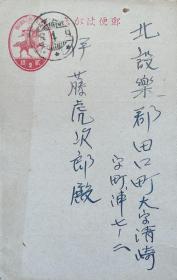 郵便はがき
北設楽郡田口町大字清崎
字町浦七ノ二
伊藤虎次郎殿